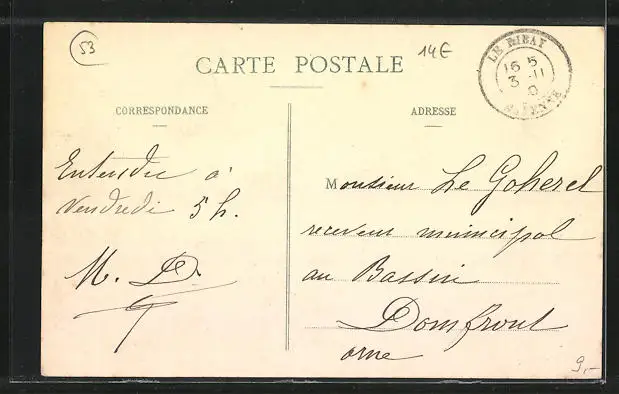 53
14€
CARTE POSTALE
LE RIBAY
16 5
3 - 11
0
MAYENNE
CORRESPONDANCE
ADRESSE
Entendu à
Vendredi 5 h.
M. D.
Monsieur Le Goherel
receveur municipal
au Bassin
Domfront
orne
9,-